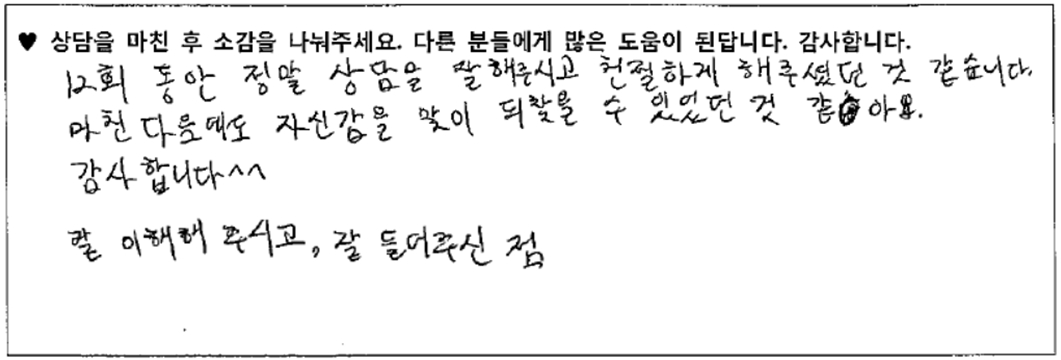 ♥ 상담을 마친 후 소감을 나눠주세요. 다른 분들에게 많은 도움이 된답니다. 감사합니다.
12회 동안 정말 상담을 잘해주시고 친절하게 해주셨던 것 같습니다.
마친다음에도 자신감을 많이 되찾을 수 있었던 것 같아요.
감사합니다^^
잘 이해해 주시고, 잘 들어주신 점